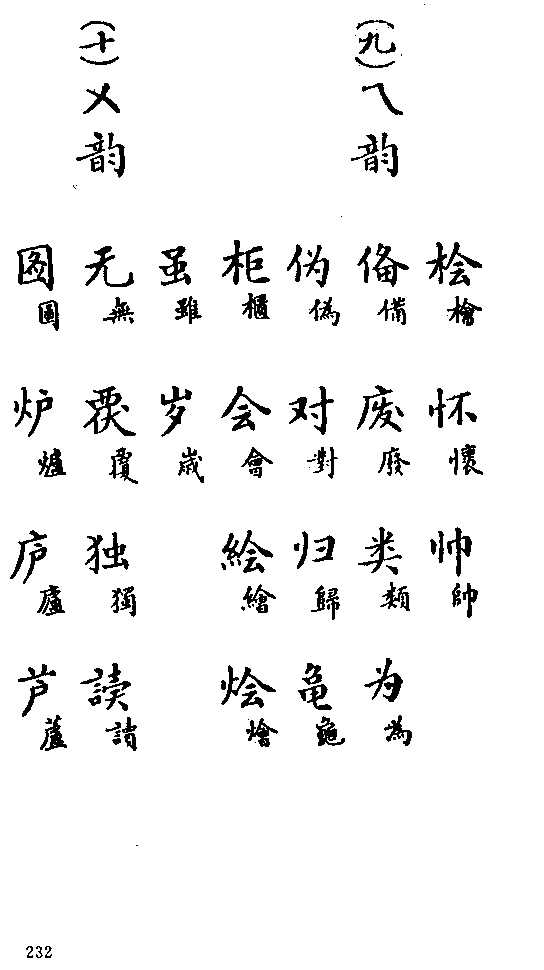 桧檜 怀懷 帅帥
(九)ㄟ韵
俻備 废廢 类類 为為
伪偽 对對 归歸 亀龜
柜櫃 会會 絵繪 烩燴
虽雖 岁歲
(十)ㄨ韵
无無 覆 独獨 讀
图圖 炉爐 庐廬 芦蘆
232